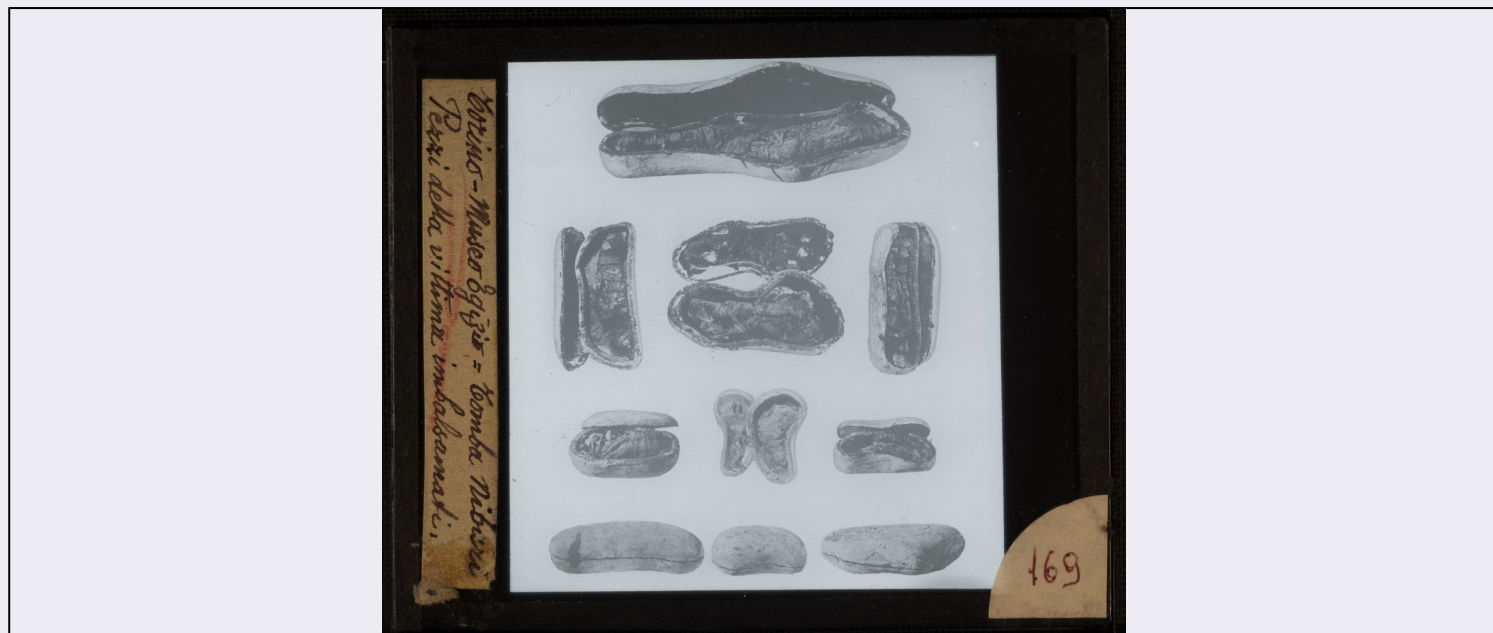 Torino - Museo Egizio = Tomba
Pezzi della vittima imbalsamati.
169